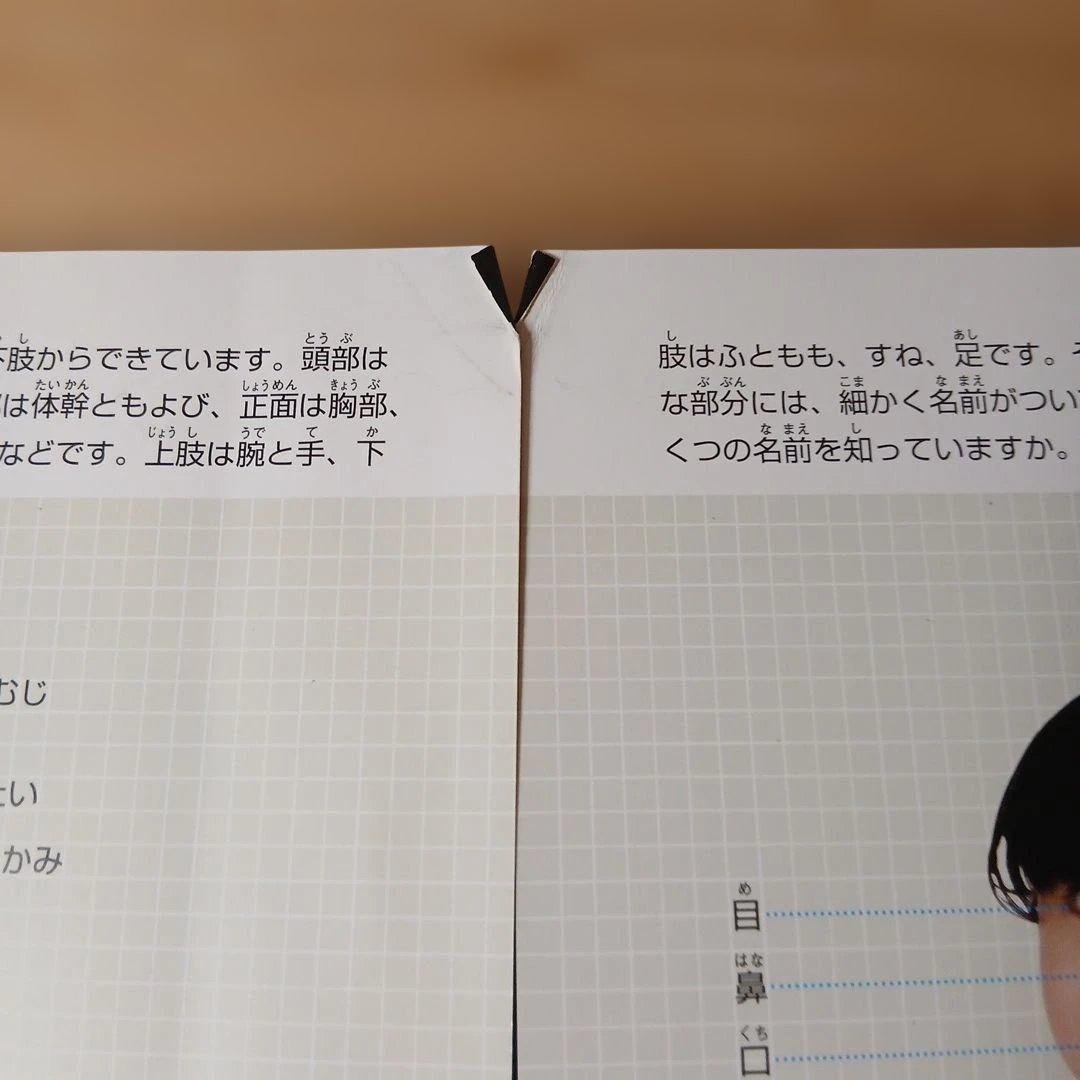 下肢からできています。頭部は
は体幹ともよび、正面は胸部、
などです。上肢は腕と手、下
むじ
たい
かみ
肢はふともも、すね、足です。そ
な部分には、細かく名前がつい
くつの名前を知っていますか。
目
鼻
口